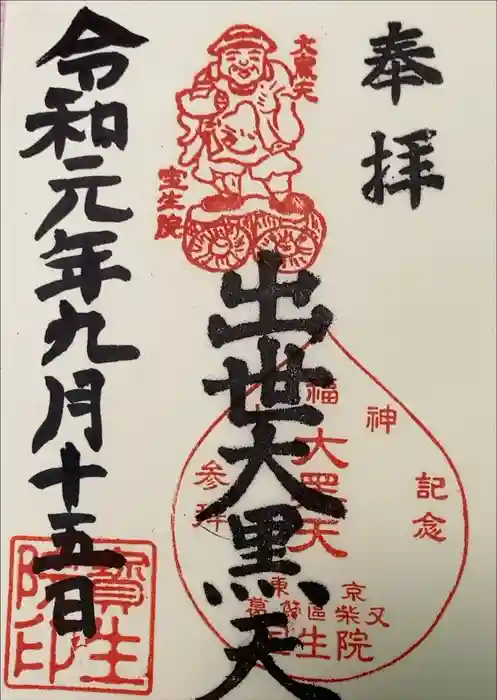 奉拝
大黒天
室生院
出世大黒天
福神
記念
参拝
大黒天
東京
葛飾区柴又
生院
令和元年九月十五日
寳生院印